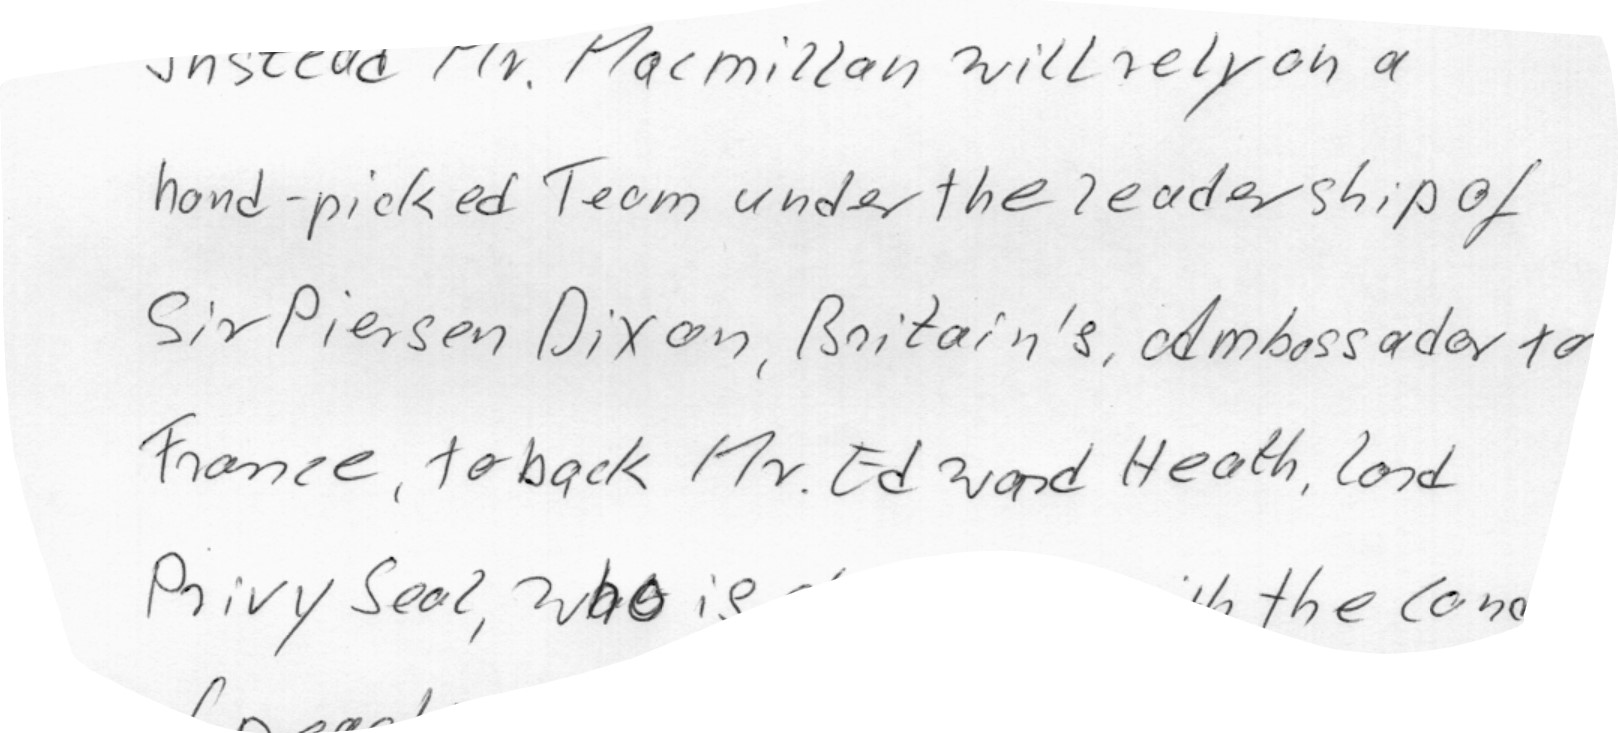 instead Mr. Macmillan will rely on a
hand-picked Team under the leadership of
Sir Piersen Dixon, Britain's, Ambassador to
France, to back Mr. Edward Heath, Lord
Privy Seal, who is the